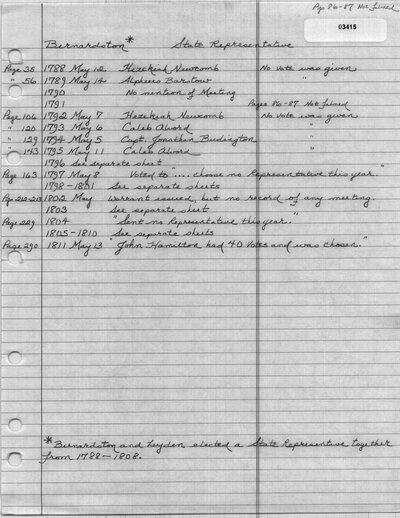 Pgs 86-87 Not filmed
03415
Bernardston* State Representative
Page 35 1788 May 12 Hezekiah Newcomb No vote was given
" 56 1789 May 14 Alpheus Barstow "
1790 No mention of Meeting
1791 Pages 86-87 Not filmed
Page 106 1792 May 7 Hezekiah Newcomb No vote was given
" 120 1793 May 6 Caleb Alvord "
" 129 1794 May 5 Capt. Jonathan Budington "
" 143 1795 May 11 Caleb Alvord "
1796 See separate sheet
Page 163 1797 May 8 Voted to "... choose no Representative this year."
1798-1801 See separate sheets
Pgs 212-213 1802 May Warrant issued, but no record of any meeting.
1803 See separate sheet
Page 229 1804 "Sent no Representative this year."
1805-1810 See separate sheets
Page 290 1811 May 13 "John Hamilton had 40 Votes and was chosen."
*Bernardston and Leyden elected a State Representive together
from 1788-1808.